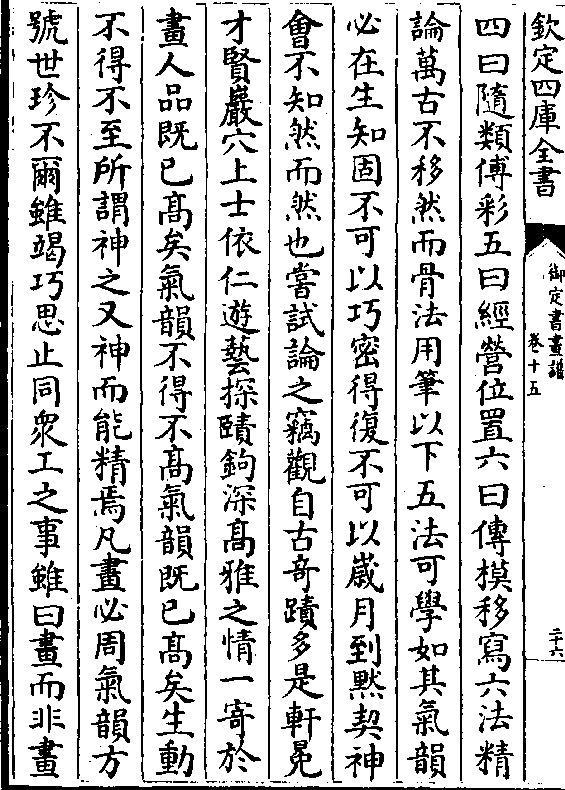 欽定四庫全書
御定書畫譜
卷十五
二十六
四曰隨類傅彩五曰經營位置六曰傳模移寫六法精
論萬古不移然而骨法用筆以下五法可學如其氣韻
必在生知固不可以巧密得復不可以嵗月到黙契神
會不知然而然也嘗試論之竊觀自古奇蹟多是軒冕
才賢巖穴上士依仁遊藝探賾鉤深髙雅之情一寄於
畫人品既已髙矣氣韻不得不髙氣韻既已髙矣生動
不得不至所謂神之又神而能精焉凡畫必周氣韻方
號世珍不爾雖竭巧思止同衆工之事雖曰畫而非畫